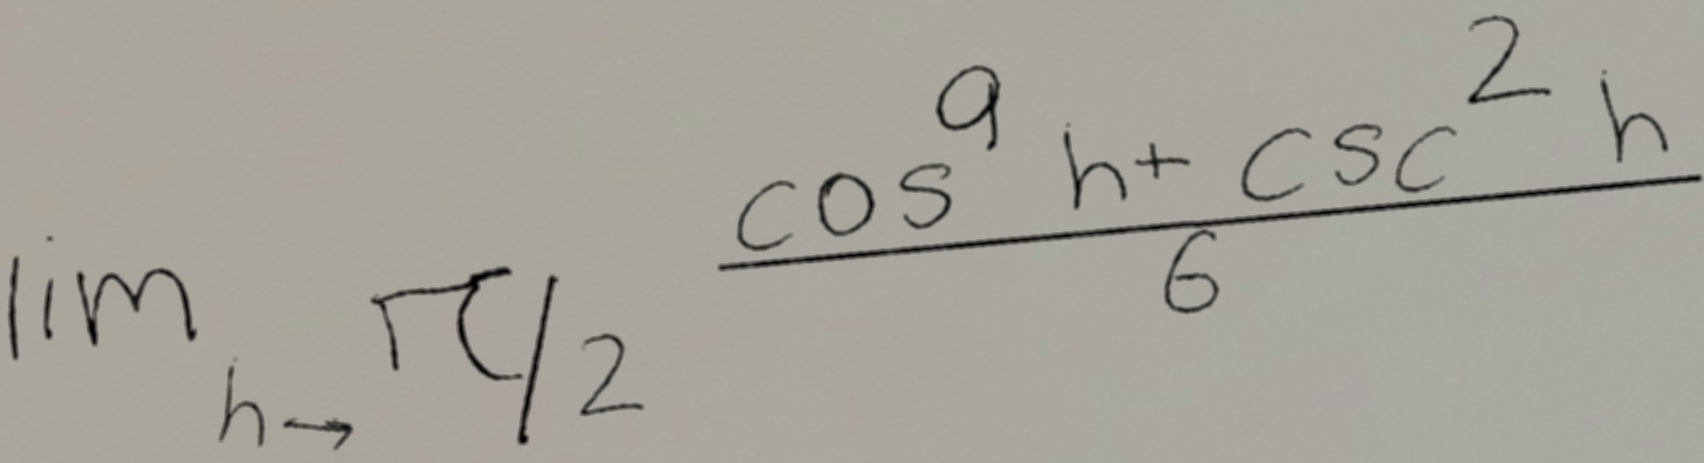 lim h→π/2 (cos^9 h + csc^2 h)/6